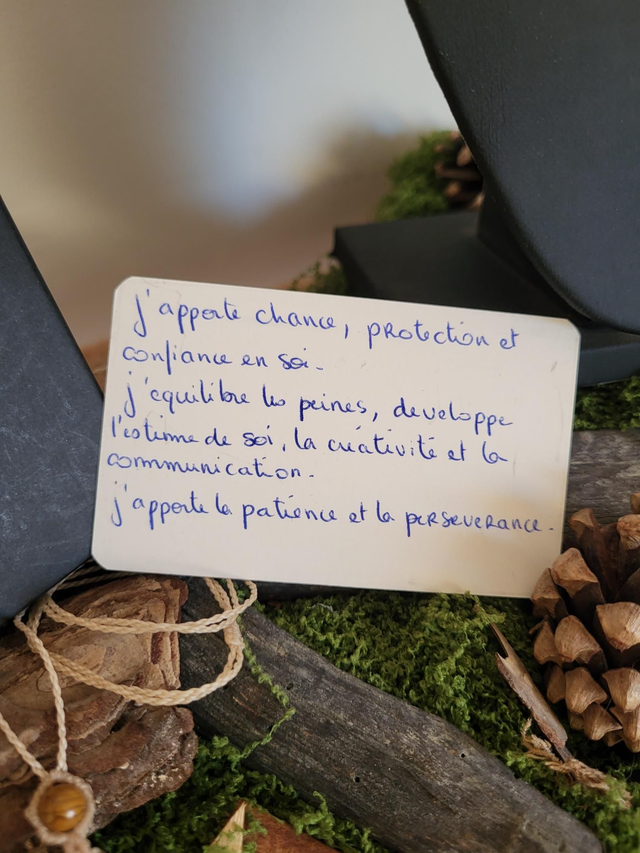 j'apporte chance, protection et
confiance en soi.
j'equilibre les peines, developpe
l'estime de soi, la créativité et la
communication.
j'apporte la patience et la perseverance.